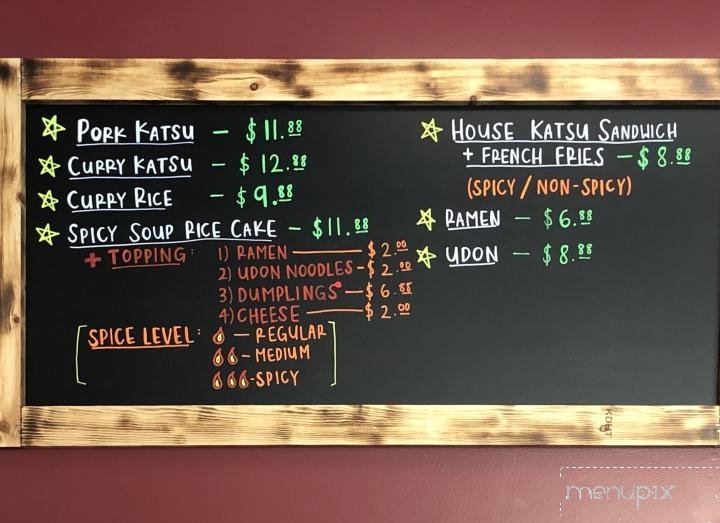 PORK KATSU - $11.88
CURRY KATSU - $12.88
CURRY RICE - $9.88
SPICY SOUP RICE CAKE - $11.88
+ TOPPING: 1) RAMEN - $2.00
2) UDON NOODLES - $2.00
3) DUMPLINGS - $6.88
4) CHEESE - $2.00
SPICE LEVEL: - REGULAR
- MEDIUM
- SPICY
HOUSE KATSU SANDWICH
+ FRENCH FRIES - $8.88
(SPICY / NON-SPICY)
RAMEN - $6.88
UDON - $8.88
menupix